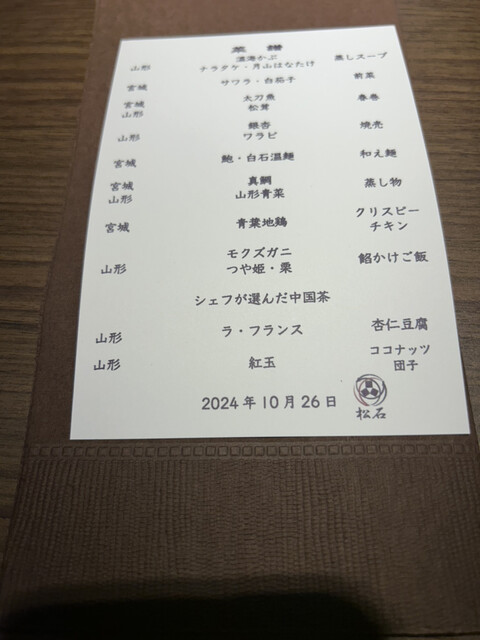 菜譜
温海かぶ
山形 ナラタケ・月山はなたけ 蒸しスープ
宮城 サワラ・白茄子 前菜
宮城 太刀魚 春巻
山形 松茸
山形 銀杏 焼売
ワラビ
宮城 鮑・白石温麺 和え麺
宮城 真鯛 蒸し物
山形 山形青菜
宮城 青葉地鶏 クリスピー
チキン
モクズガニ
山形 つや姫・栗 餡かけご飯
シェフが選んだ中国茶
山形 ラ・フランス 杏仁豆腐
山形 紅玉 ココナッツ
団子
2024年10月26日
松石